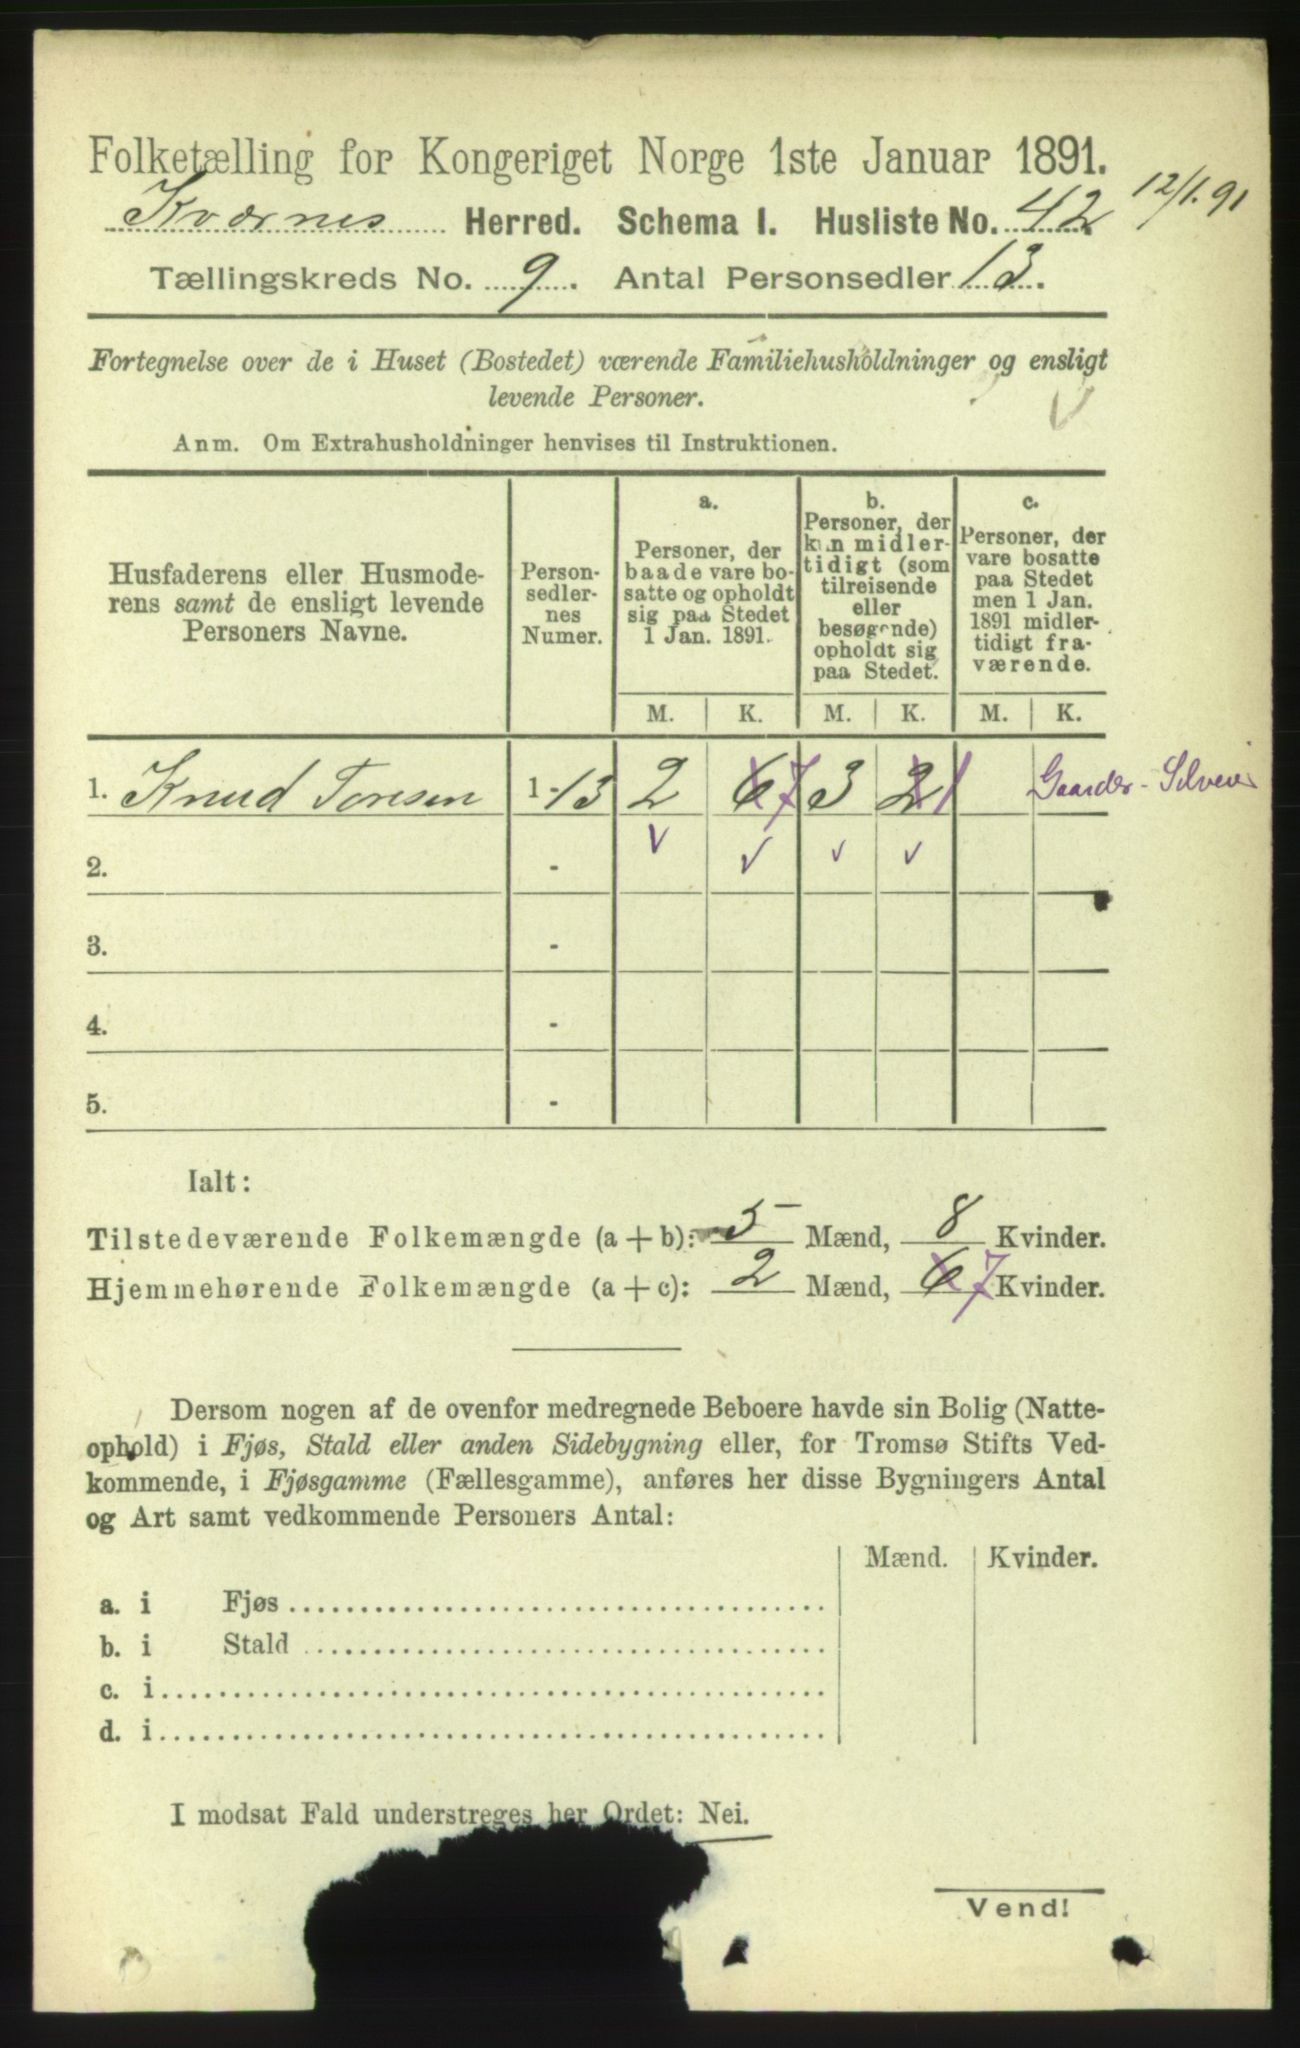 Folketælling for Kongeriget Norge 1ste Januar 1891.
12/1.91
Kværnes Herred. Schema I. Husliste No. 42
Tællingskreds No. 9. Antal Personsedler 13.
Fortegnelse over de i Huset (Bostedet) værende Familiehusholdninger og ensligt
levende Personer.
Anm. Om Extrahusholdninger henvises til Instruktionen.
Husfaderens eller Husmode-
rens samt de ensligt levende
Personers Navne.
Person-
sedler-
nes
Numer.
a.
Personer, der
baade vare bo-
satte og opholdt
sig paa Stedet
1 Jan. 1891.
b.
Personer, der
kun midler-
tidigt (som
tilreisende
eller
besøgende)
opholdt sig
paa Stedet.
c.
Personer, der
vare bosatte
paa Stedet
men 1 Jan.
1891 midler-
tidigt fra-
værende.
M. K. M. K. M. K.
1. Knud Toresen 1-13 2 6 7 3 2 1 Gaarder-
2. -
3. -
4. -
5. -
Ialt:
Tilstedeværende Folkemængde (a + b): 5 Mænd, 8 Kvinder.
Hjemmehørende Folkemængde (a + c): 2 Mænd, 6 7 Kvinder.
Dersom nogen af de ovenfor medregnede Beboere havde sin Bolig (Natte-
ophold) i Fjøs, Stald eller anden Sidebygning eller, for Tromsø Stifts Ved-
kommende, i Fjøsgamme (Fællesgamme), anføres her disse Bygningers Antal
og Art samt vedkommende Personers Antal:
Mænd. Kvinder.
a. i Fjøs
b. i Stald
c. i
d. i
I modsat Fald understreges her Ordet: Nei.
Vend!